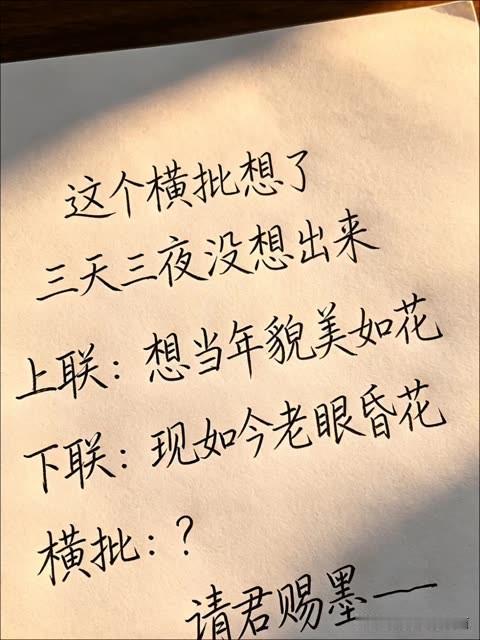 这个横批想了
三天三夜没想出来
上联：想当年貌美如花
下联：现如今老眼昏花
横批：？
请君赐墨——